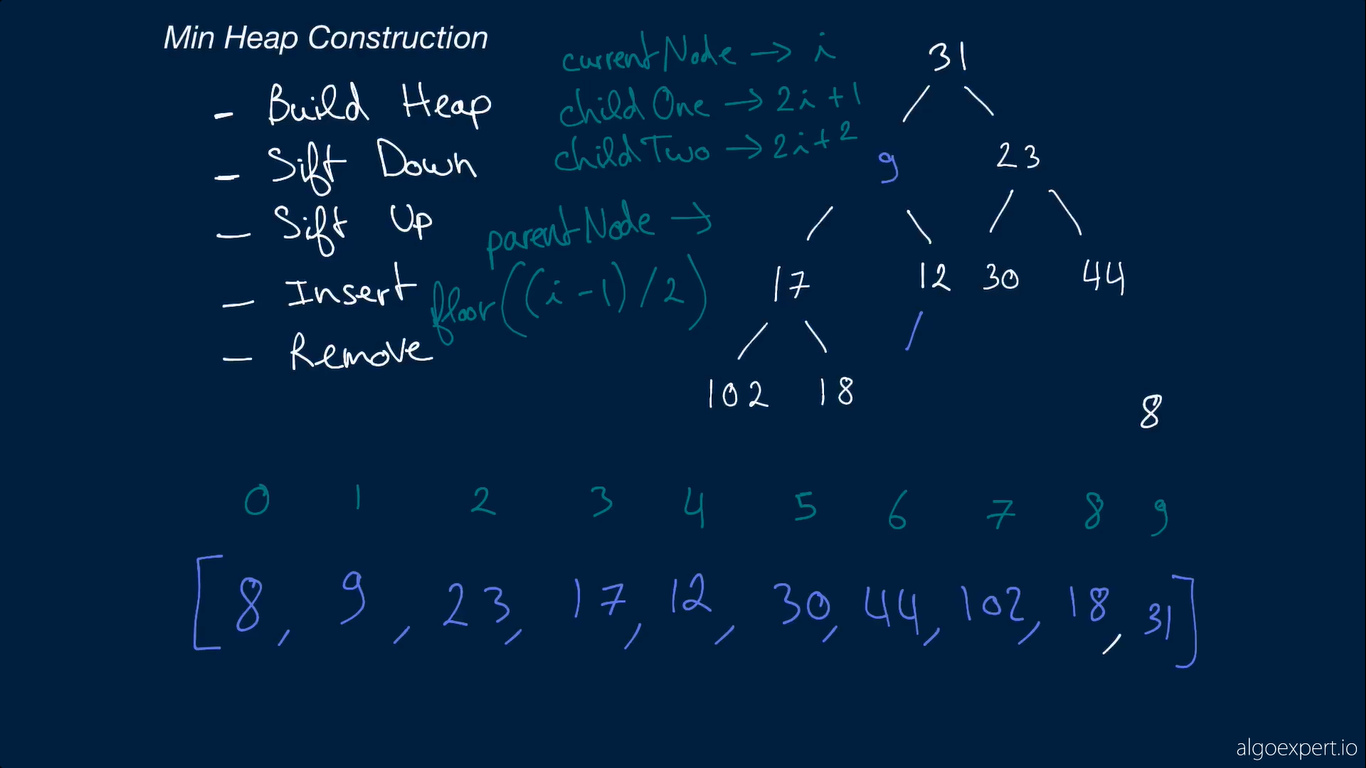 Min Heap Construction
- Build Heap
- Sift Down
- Sift Up
- Insert
- Remove
currentNode → i
childOne → 2i+1
childTwo → 2i+2
parentNode →
floor((i-1)/2)
31
9 23
17 12 30 44
102 18
8
0 1 2 3 4 5 6 7 8 9
[8, 9, 23, 17, 12, 30, 44, 102, 18, 31]
algoexpert.io